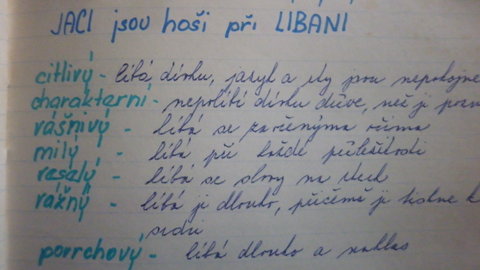 JACI jsou hoši při LIBANI
citlivý - líbá dívku, jazyk a rty jsou nepokojné
charakterní - nepolíbí dívku dříve, než ji pozná
vášnivý - líbá se zavřenýma očima
milý - líbá při každé příležitosti
veselý - líbá se slovy na rtech
vážný - líbá ji dlouho, přičemž ji tiskne k
srdci
povrchový - líbá dlouho a nahlas